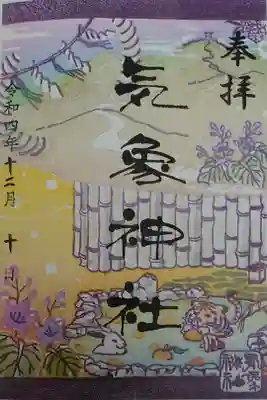 奉拝
気象神社
令和四年十二月十日